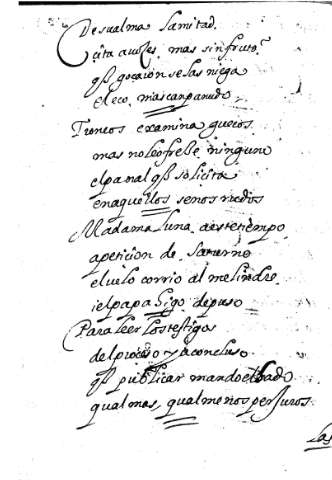 De su alma la mitad
cita a voses, mas sin fruto,
q̃ gocaronselas niega
el eco, mas campanudo.
Troncos examina guecos
mas no le ofresse ninguno
el panal q̃ solicita
en aquellos senos rudos
Madama Luna a este tiempo
a peticion de Saturno
el uelo corrio al melindre
i el papahigo depuso
Para leer los testigos
del proceso ya concluso
q̃ publicar mando el hado
qual mas, qual menos perjuros.
Las